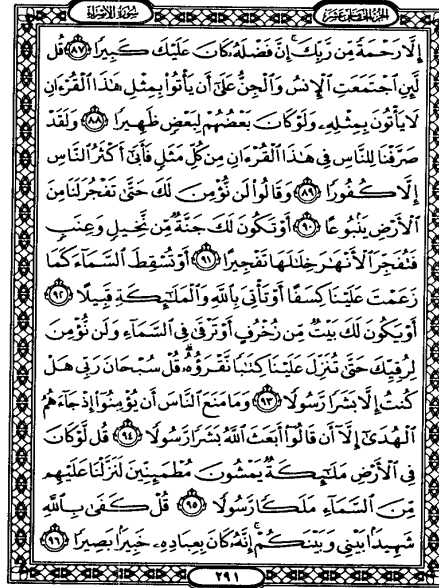 سورة الإسراء
الجزء الخامس عشر
إِلَّا رَحْمَةً مِّن رَّبِّكَ إِنَّ فَضْلَهُ كَانَ عَلَيْكَ كَبِيرًا ٨٧ قُل
لَّئِنِ ٱجْتَمَعَتِ ٱلْإِنسُ وَٱلْجِنُّ عَلَىٰٓ أَن يَأْتُوا۟ بِمِثْلِ هَٰذَا ٱلْقُرْءَانِ
لَا يَأْتُونَ بِمِثْلِهِۦ وَلَوْ كَانَ بَعْضُهُمْ لِبَعْضٍ ظَهِيرًا ٨٨ وَلَقَدْ
صَرَّفْنَا لِلنَّاسِ فِى هَٰذَا ٱلْقُرْءَانِ مِن كُلِّ مَثَلٍ فَأَبَىٰٓ أَكْثَرُ ٱلنَّاسِ
إِلَّا كُفُورًا ٨٩ وَقَالُوا۟ لَن نُّؤْمِنَ لَكَ حَتَّىٰ تَفْجُرَ لَنَا مِنَ
ٱلْأَرْضِ يَنۢبُوعًا ٩٠ أَوْ تَكُونَ لَكَ جَنَّةٌ مِّن نَّخِيلٍ وَعِنَبٍ
فَتُفَجِّرَ ٱلْأَنْهَٰرَ خِلَٰلَهَا تَفْجِيرًا ٩١ أَوْ تُسْقِطَ ٱلسَّمَآءَ كَمَا
زَعَمْتَ عَلَيْنَا كِسَفًا أَوْ تَأْتِىَ بِٱللَّهِ وَٱلْمَلَٰٓئِكَةِ قَبِيلًا ٩٢
أَوْ يَكُونَ لَكَ بَيْتٌ مِّن زُخْرُفٍ أَوْ تَرْقَىٰ فِى ٱلسَّمَآءِ وَلَن نُّؤْمِنَ
لِرُقِيِّكَ حَتَّىٰ تُنَزِّلَ عَلَيْنَا كِتَٰبًا نَّقْرَؤُهُۥ قُلْ سُبْحَانَ رَبِّى هَلْ
كُنتُ إِلَّا بَشَرًا رَّسُولًا ٩٣ وَمَا مَنَعَ ٱلنَّاسَ أَن يُؤْمِنُوٓا۟ إِذْ جَآءَهُمُ
ٱلْهُدَىٰٓ إِلَّآ أَن قَالُوٓا۟ أَبَعَثَ ٱللَّهُ بَشَرًا رَّسُولًا ٩٤ قُل لَّوْ كَانَ
فِى ٱلْأَرْضِ مَلَٰٓئِكَةٌ يَمْشُونَ مُطْمَئِنِّينَ لَنَزَّلْنَا عَلَيْهِم
مِّنَ ٱلسَّمَآءِ مَلَكًا رَّسُولًا ٩٥ قُلْ كَفَىٰ بِٱللَّهِ
شَهِيدًۢا بَيْنِى وَبَيْنَكُمْ إِنَّهُۥ كَانَ بِعِبَادِهِۦ خَبِيرًۢا بَصِيرًا ٩٦
٢٩١